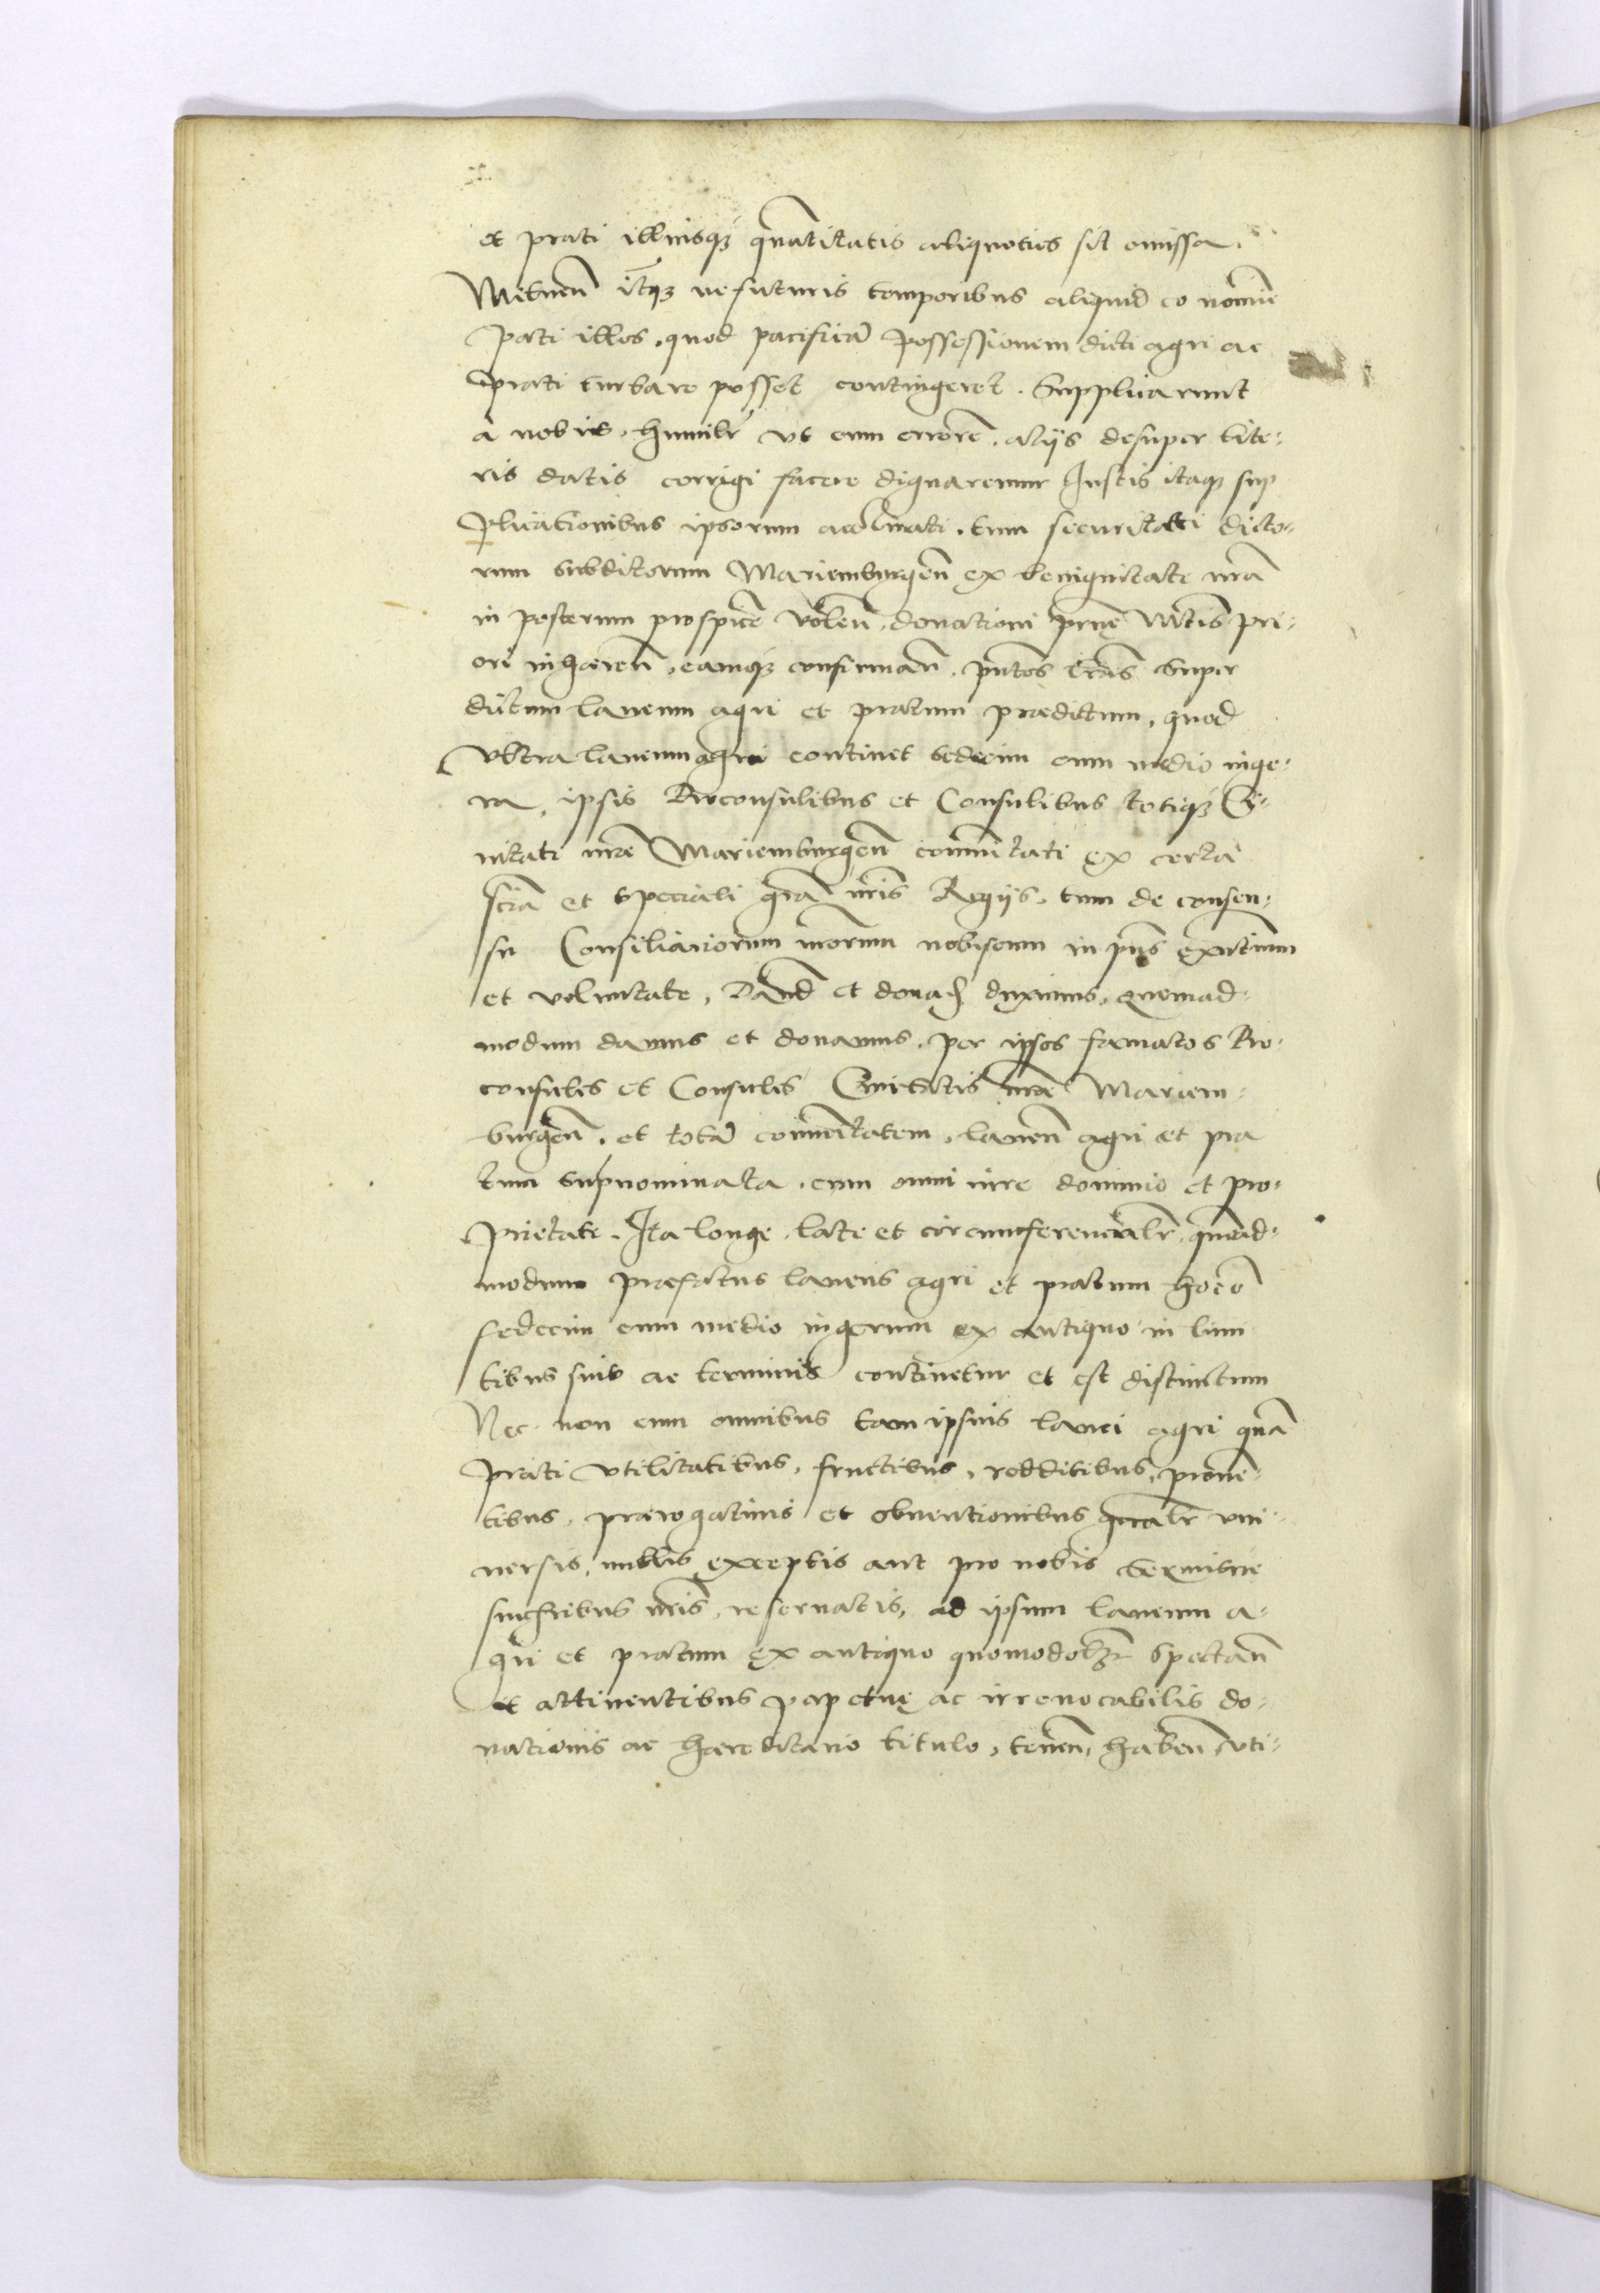 et prati illiusq3 quãtitatis aliquotius sit omissa.
Metuen̄ itq3 ne futuris temporibus aliquid eo nomīe
pati illos, quod pacificā possessionem dicti agri ac
prati turbare posset contingeret. Supplicarunt
a nobis. humilr̄ vt eum errorē, alijs desuper lite-
ris datis corrigi facere dignaremur Justis itaq3 sup
plicationibus ipsorum acclinati. tum securitati dicto-
rum subditorum Mariemburgen̄ ex benignitate nr̄a
in posterum prospicē volen̄, donationi pr̄nę nr̄is pri-
ori inhæren̄, eamq3 confirman̄. pn̄tes lr̄is super
dictum laneum agri et pratum prædictum, quod
vltra laneum agri continet sedecim cum medio iuge-
ra, ipsis Proconsulibus et Consulibus totiq3 Ci-
uitati nr̄e Mariemburgen̄ com̄unitati ex certa
scīa et speciali gr̄a nr̄is Regijs, tum de consen-
su Consiliariorum nr̄orum nobiscum in pn̄s existentium
et voluntate, Dand̄ et donad̄ duximus, quemad-
modum damus et donamus. per ipsos famatos Pro-
consules et Consules Ciuitatis nr̄e Mariem-
burgen̄. et totā com̄unitatem, laneū agri et pra
tum supnominata. cum omni iure dominio et pro-
prietate. Ita longe, late et circumferencialr̄, quēad-
modum præfatus laneus agri et pratum hocē
sedecim cum medio iugerum ex antiquo in limi
tibus suis ac terminis continetur et est distinctum
Nec non cum omnibus tam ipsius lanei agri quā
prati vtilitatibus, fructibus, redditibus, prouē-
tibus, prærogatiuis et obuentionibus gn̄alr̄ vni-
uersis, nullis exceptis aut pro nobis Serenissī
successoribus nr̄is, reseruatis, ad ipsum laneum a-
gri et pratum ex antiquo quomodolb3 spectan̄
et attinentibus perpetuę ac irreuocabilis do-
nationis ac hæreditario titulo, tenen̄, haben̄, vti-